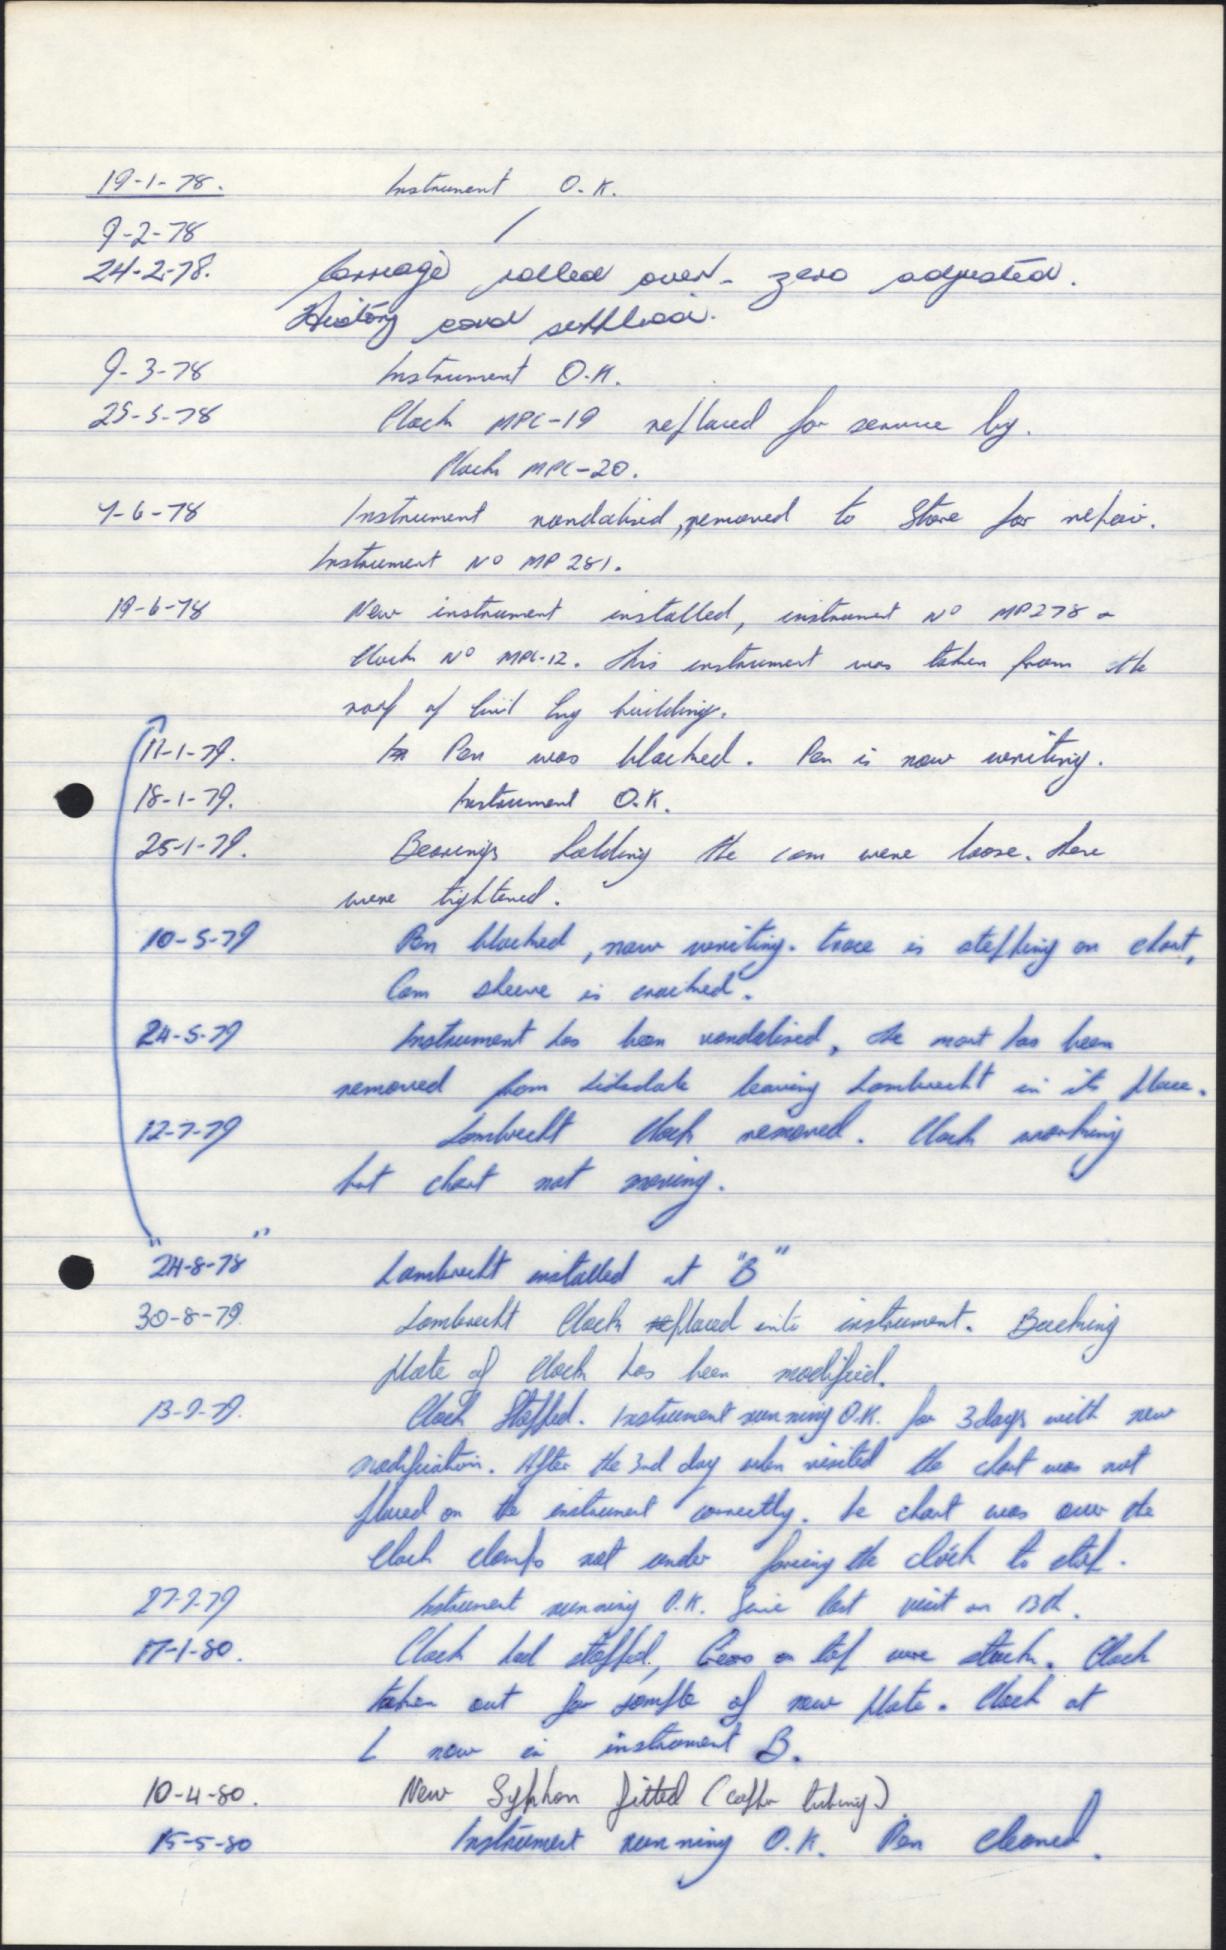 19-1-78. Instrument O.K.
9-2-78 /
24-2-78. Carriage rolled over - zero adjusted.
History card
9-3-78 Instrument O.K.
25-5-78 Clock MPC-19 replaced for service by.
Clock MPC-20.
7-6-78 Instrument vandalised, removed to Store for repair.
Instrument No MP 281.
19-6-78 New instrument installed, instrument No MP278 &
Clock No MPC-12. This instrument was taken from the
roof of Civil Eng building.
11-1-79. Pen was blocked. Pen is now writing.
18-1-79. Instrument O.K.
25-1-79. Bearings holding the cam were loose. These
were tightened.
10-5-79 Pen blocked, now writing. trace is stepping on chart,
Cam sleeve is cracked.
24-5-79 Instrument has been vandalised, the mort has been
removed from Lidsdale leaving Lambrecht in its place.
12-7-79 Lambrecht Clock removed. Clock working
but chart not moving.
"24-8-78" Lambrecht installed at "B"
30-8-79. Lambrecht Clock replaced into instrument. Backing
Plate of Clock has been modified.
13-9-79. Clock Stopped. Instrument running O.K. for 3 days with new
modification. After the 3rd day when visited the chart was not
placed on the instrument correctly. he chart was over the
Clock clamps not under forcing the clock to stop.
27-9-79 Instrument running O.K. Since last visit on 13th.
17-1-80. Clock had stopped, Gears on top were stuck. Clock
taken out for sample of new Plate. Clock at
L now in instrument B.
10-4-80. New Syphon fitted (copper tubing)
15-5-80 Instrument running O.K. Pen cleaned.